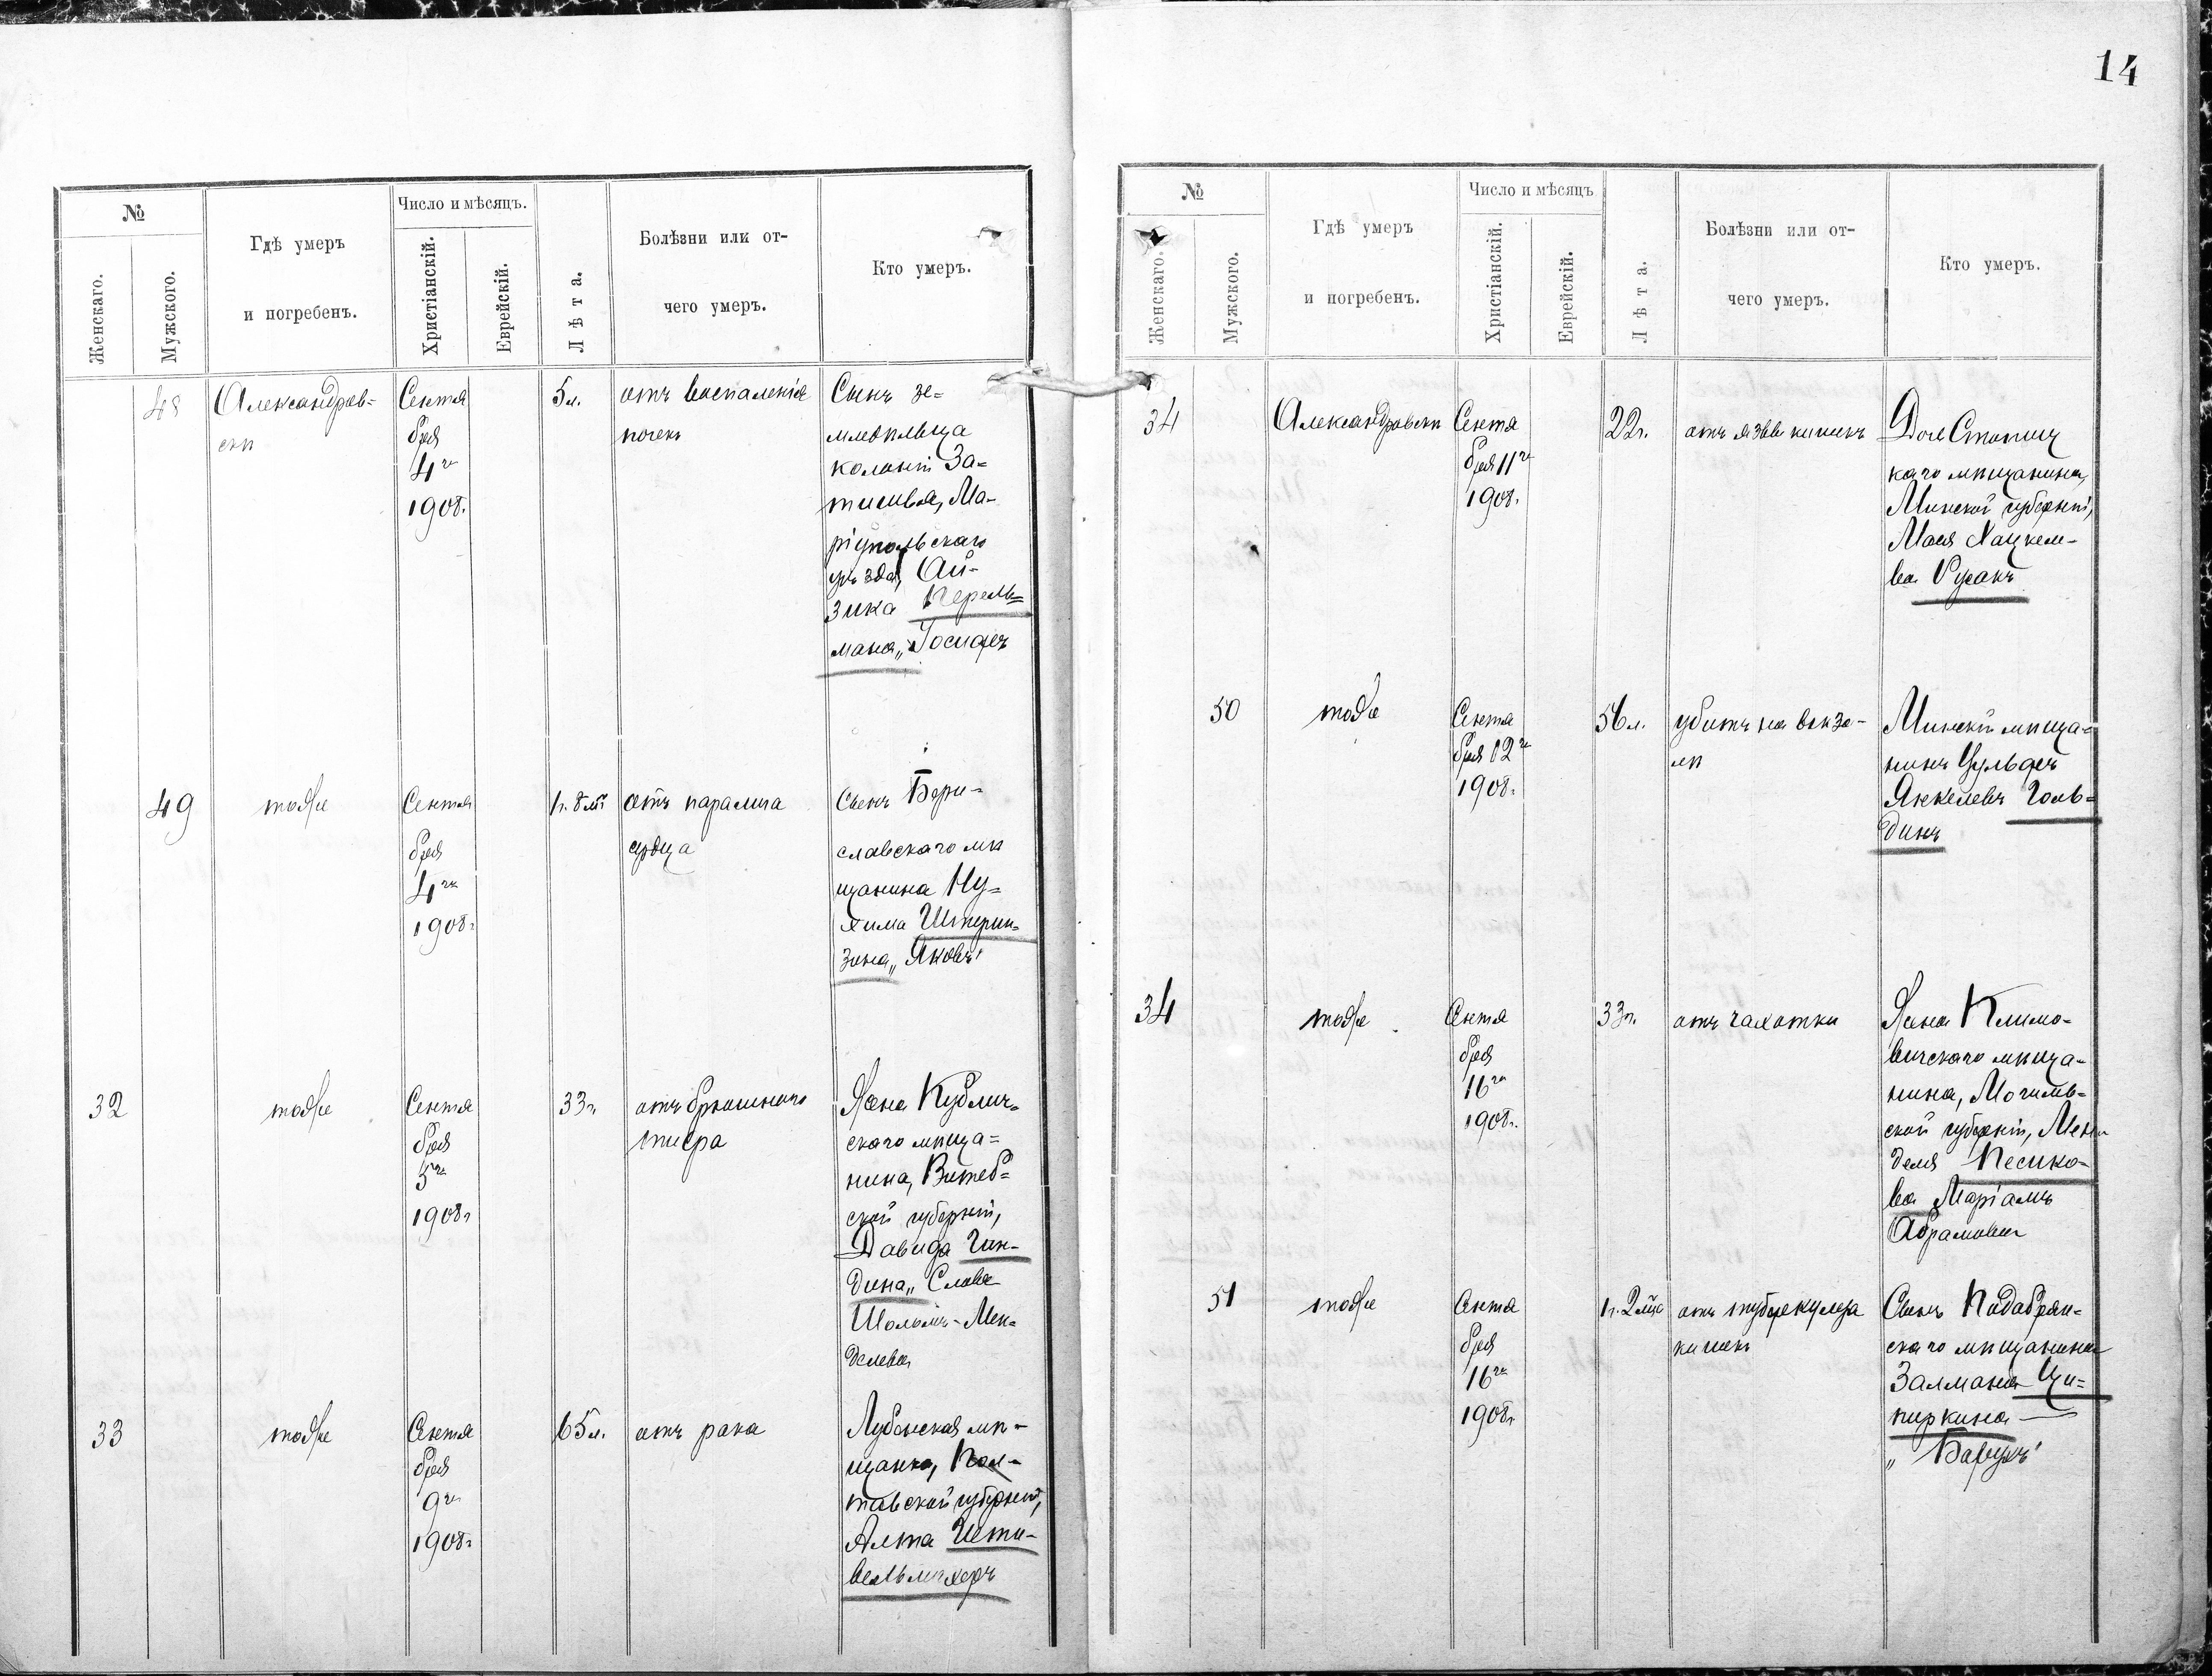 14
№
Женскаго.
Мужского.
Гдѣ умеръ
и погребенъ.
Число и мѣсяцъ.
Христіанскій.
Еврейскій.
Лѣта.
Болѣзни или от-
чего умеръ.
Кто умеръ.
48
Александров-
скѣ
Сентя
бря
4го
1908.
5л.
отъ воспаленія
почекъ
Сынъ зе-
мледѣльца
колоніи За-
тишья, Ма-
ріупольскаго
уѣзда, Ай-
зика Перель-
мана „Іосифъ
49
тоже
Сентя
бря
4го
1908г
1г. 8м.
отъ паралича
сердца
Сынъ Бери-
славскаго мѣ
щанина Ну-
хима Штерин-
зона „Яковъ"
32
тоже
Сентя
бря
5го
1908г
33г.
отъ брюшного
тифа
Жена Кублич-
скаго мѣща-
нина, Витеб-
ской губерніи,
Давида Гин-
дина „Слава
Шоломъ-Мен-
делева
33
тоже
Сентя
бря
9го
1908г
65л.
отъ рака
Лубенская мѣ-
щанка, Пол-
тавской губерніи,
Алта
вельмахеръ
№
Женскаго.
Мужского.
Гдѣ умеръ
и погребенъ.
Число и мѣсяцъ
Христіанскій.
Еврейскій.
Лѣта.
Болѣзни или от-
чего умеръ.
Кто умеръ.
34
Александровскѣ
Сентя
бря 11го
1908.
22г.
отъ язвы кишекъ
Дочь
каго мѣщанина,
Минской губерніи,
Мася Хацкеле-
ва Русакъ
50
тоже
Сентя
бря 12го
1908г.
56л.
убитъ на вокза-
лѣ
Минскій мѣща-
нинъ
Янкелевъ Голь-
динъ
34
тоже
Сентя
бря
16го
1908г.
33г.
отъ чахотки
Жена Климо-
вичскаго мѣща-
нина, Могилев-
ской губерніи, Мен
деля Песико-
ва Маріамъ
Абрамовна
51
тоже
Сентя
бря
16го
1908г
1г. 2мца
отъ туберкулеза
кишекъ
Сынъ Подобрян-
скаго мѣщанина
Залмана Ци-
пиркина
„ Борухъ"